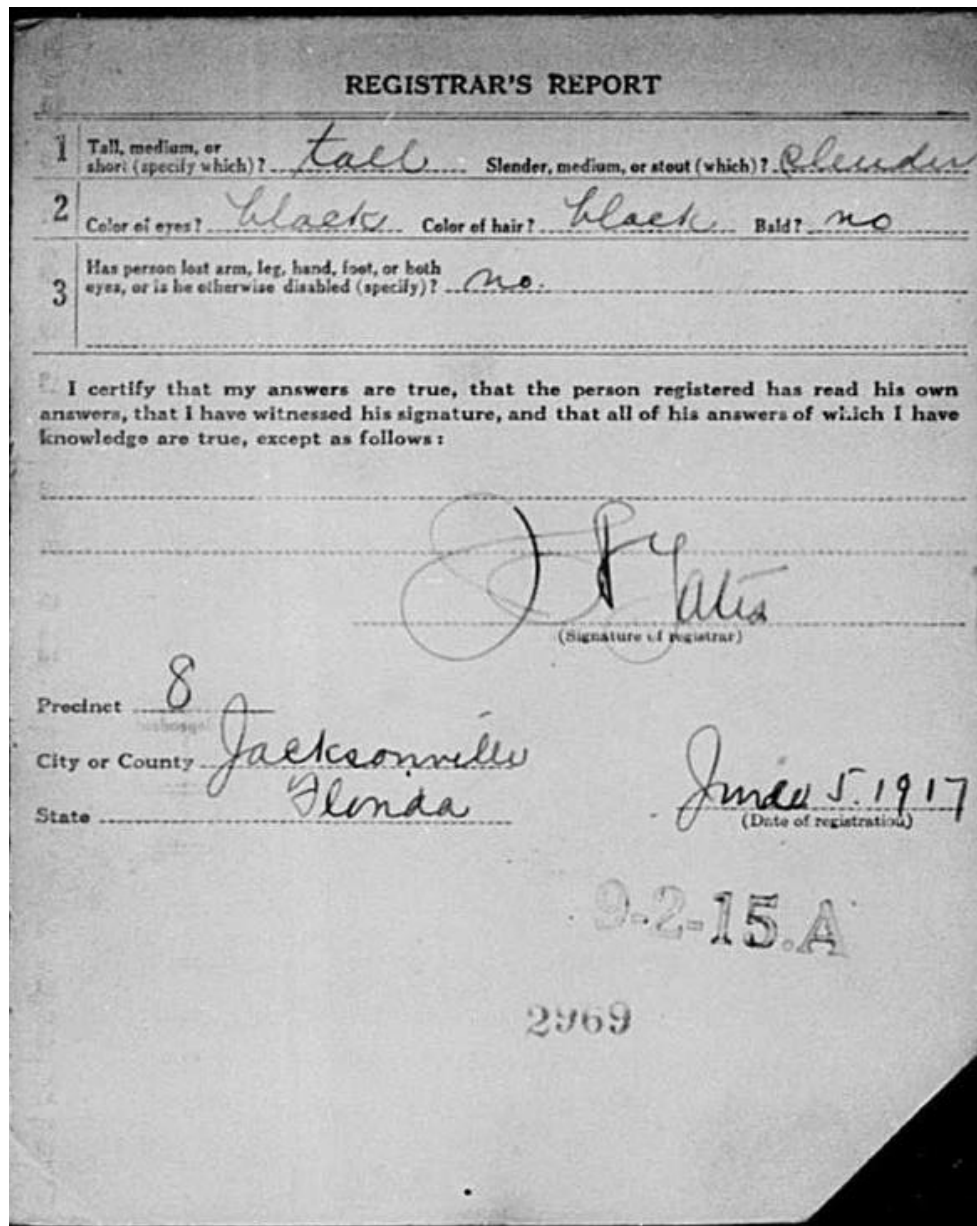 REGISTRAR'S REPORT
1 Tall, medium, or
short (specify which)? tall Slender, medium, or stout (which)? slender
2 Color of eyes? black Color of hair? black Bald? no
3 Has person lost arm, leg, hand, foot, or both
eyes, or is he otherwise disabled (specify)? no.
I certify that my answers are true, that the person registered has read his own
answers, that I have witnessed his signature, and that all of his answers of which I have
knowledge are true, except as follows:
Yates
(Signature of registrar)
Precinct 8
City or County Jacksonville
State Florida
June 5. 1917
(Date of registration)
9-2-15.A
2969